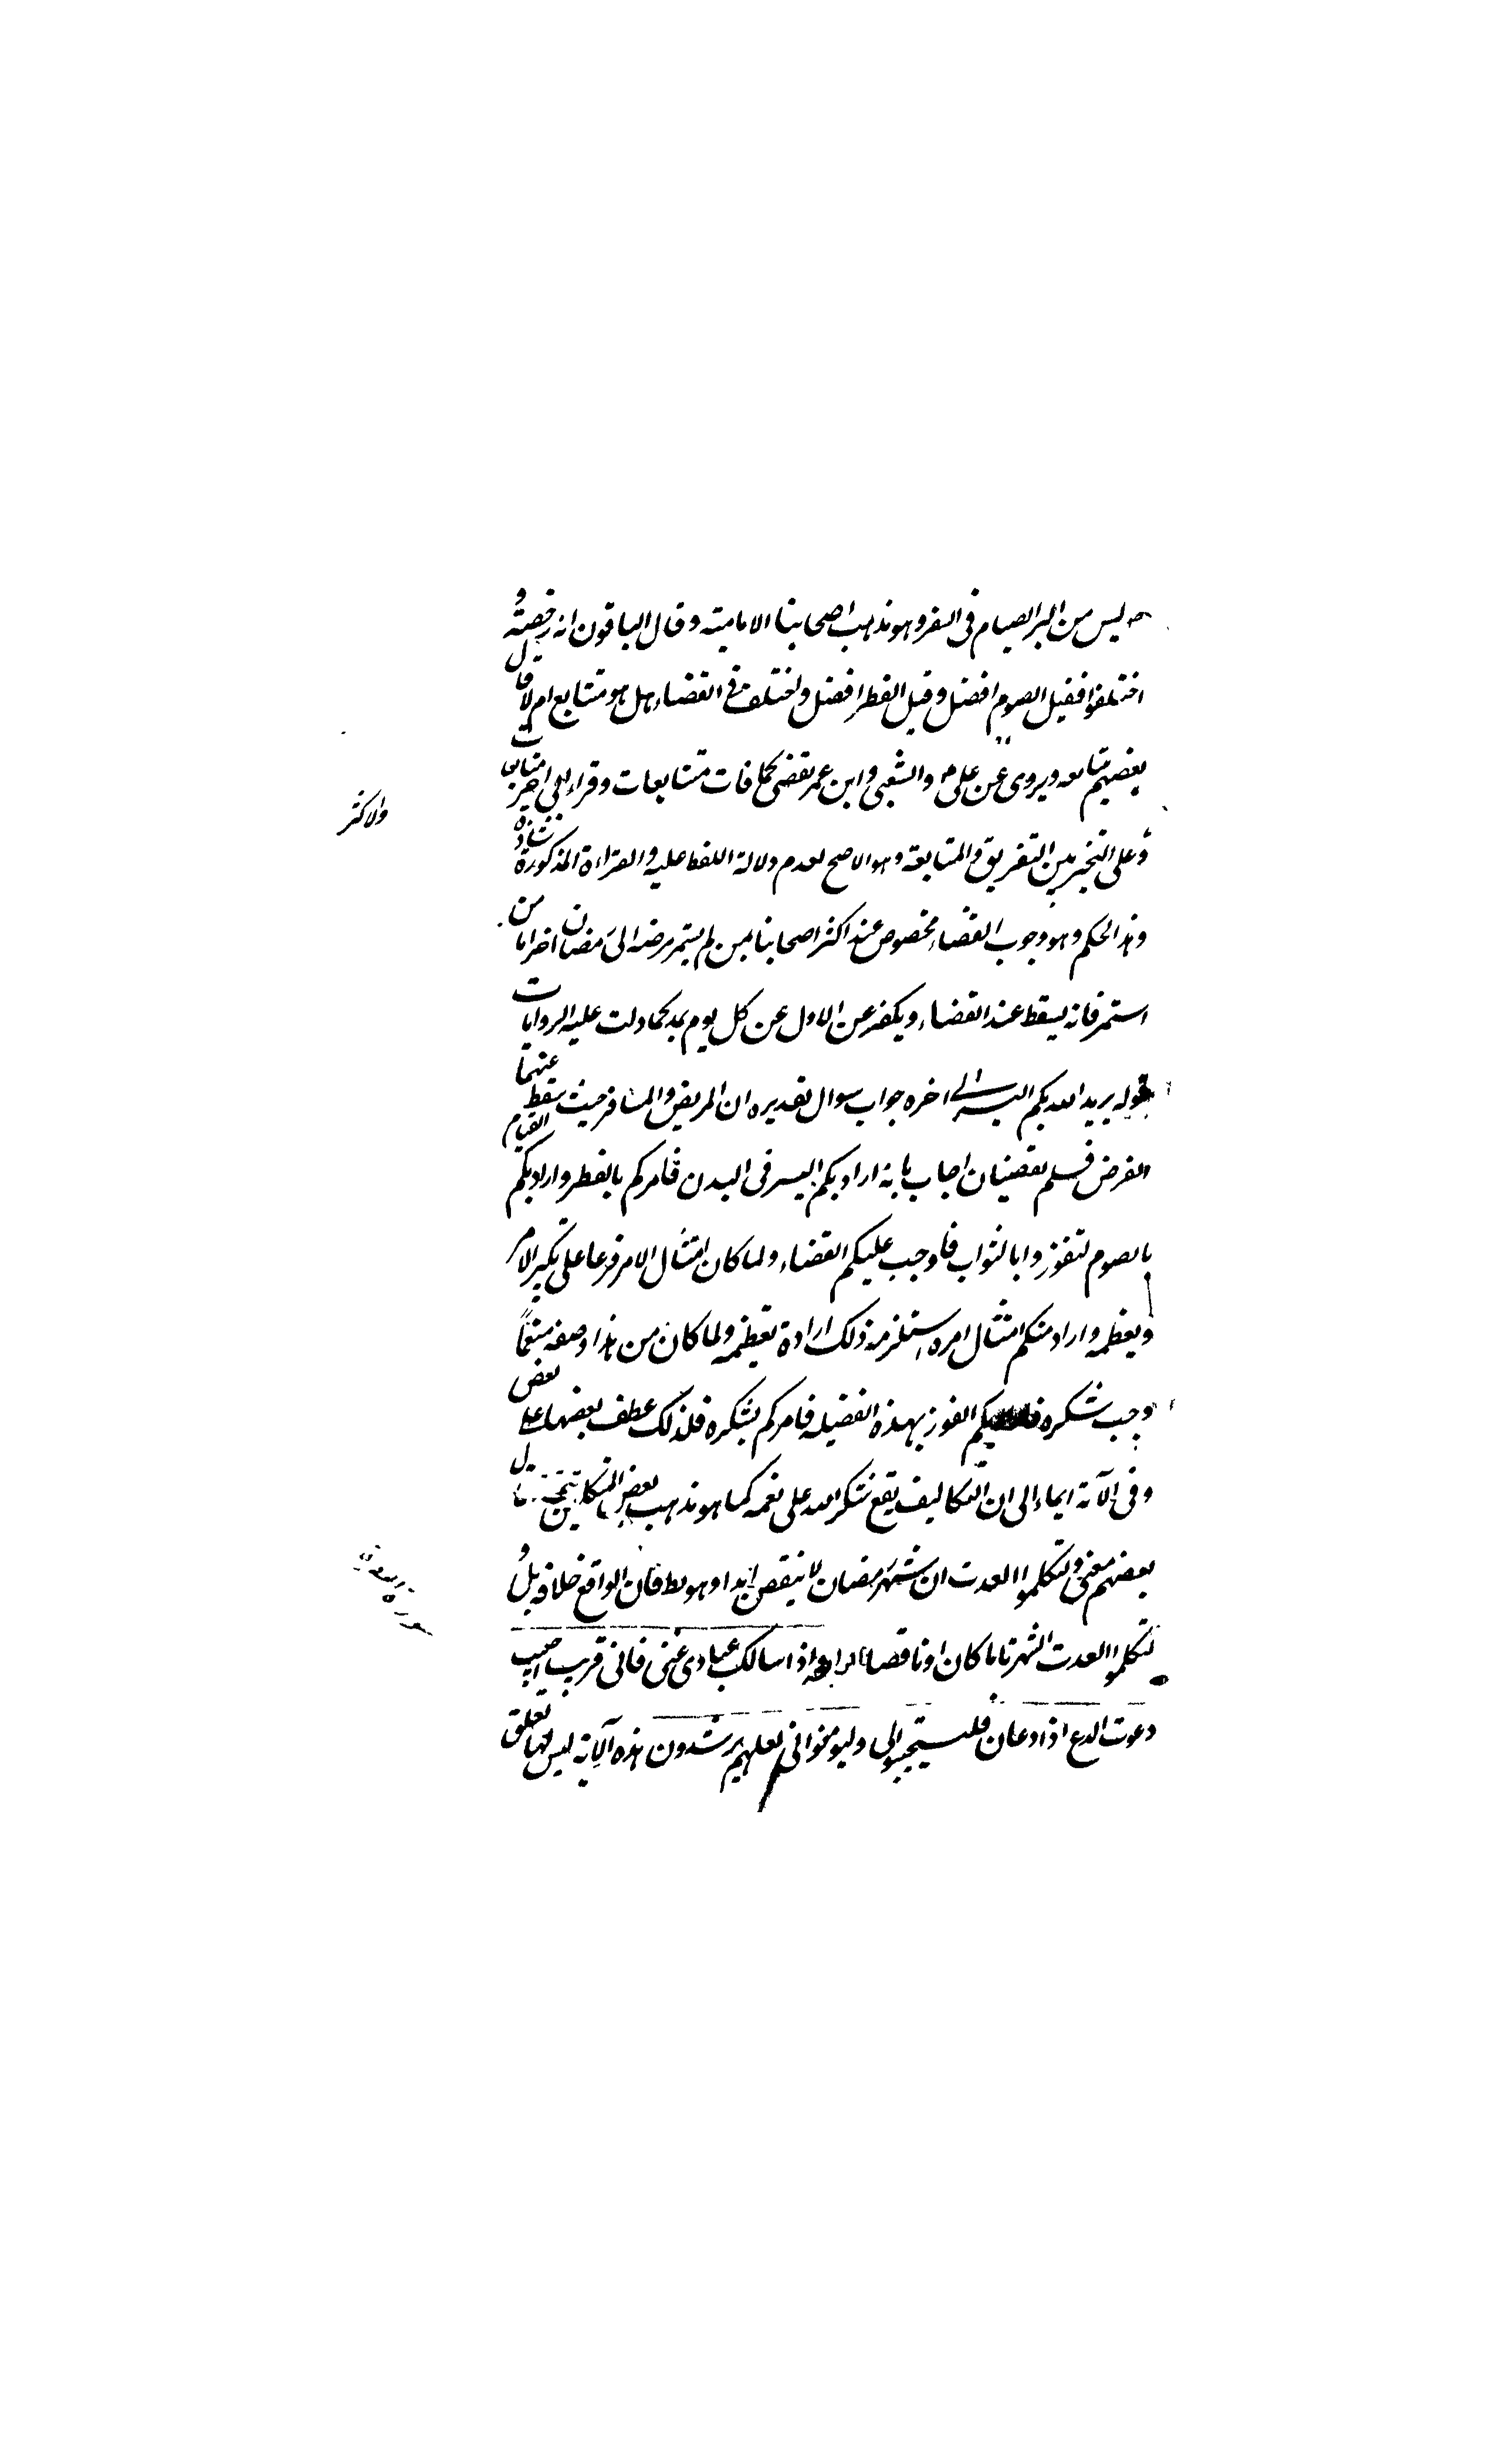 ليس من البر الصيام فى السفر وهو مذهب اصحابنا الاماميته وقال الباقون انه رخصته و
اختلفوا فقيل الصوم افضل وقيل الفطر افضل واختلف فى القضاء هل هو متتابع ام لا قال
بعضهم متتابعه ويروى عن على والشعبى وابن عمر يقضى كما فات متتابعات وقراء ابى اخر متتابعات
والاكثر
وعلى التخير بين التفريق والمتابعة وهو الاصح لعدم دلالة اللفظ عليه والقراءة المذكورة شاذة
وهذا الحكم وهو وجوب القضاء مخصوص عند اكثر اصحابنا بمن لم يستمر مرضه الى رمضان اخر اما من
استمر فانه يسقط عند القضاء ويكفر عن الاول عن كل يوم بمد كما دلت عليه الروايات
قوله يريد الله بكم اليسر الى اخره جواب سوال تقديره ان المريض والمسافر حيث سقط عنهما
الفرض فلم يقضيان اجاب بانه اراد بكم اليسر فى البدن فامركم بالفطر واراد بكم القيام
بالصوم لتفوزوا بالثواب فاوجب عليكم القضاء ولما كان امتثال الامر فرعا على تكبير الامر
وتعظيمه واراد منكم امتثال امره استلزمه ذلك ارادة تعظيمه ولما كان من هذا وصفه منعمًا
وجب شكره الفوز بهذه الفضيله فامركم بشكره فلذلك عطف بعضها على بعض
وفى الآية ايماء الى ان التكاليف يقع شكر الله على نعمه كما هو مذهب بعض المتكلمين
بعضهم معنى ولتكلموا العدت ان شهر رمضان لا ينقص ابدا وهو بط فان الواقع خلافه بل و
لتكلموا العدت الشهر تاما كان او ناقصا الرابعه اذا سالك عبادى عنى فانى قريب اجيب
دعوت الدع اذا دعان فليستجيبوا لى وليومنوا بى لعلهم يرشدون هذه الآية ليس لها تعلق